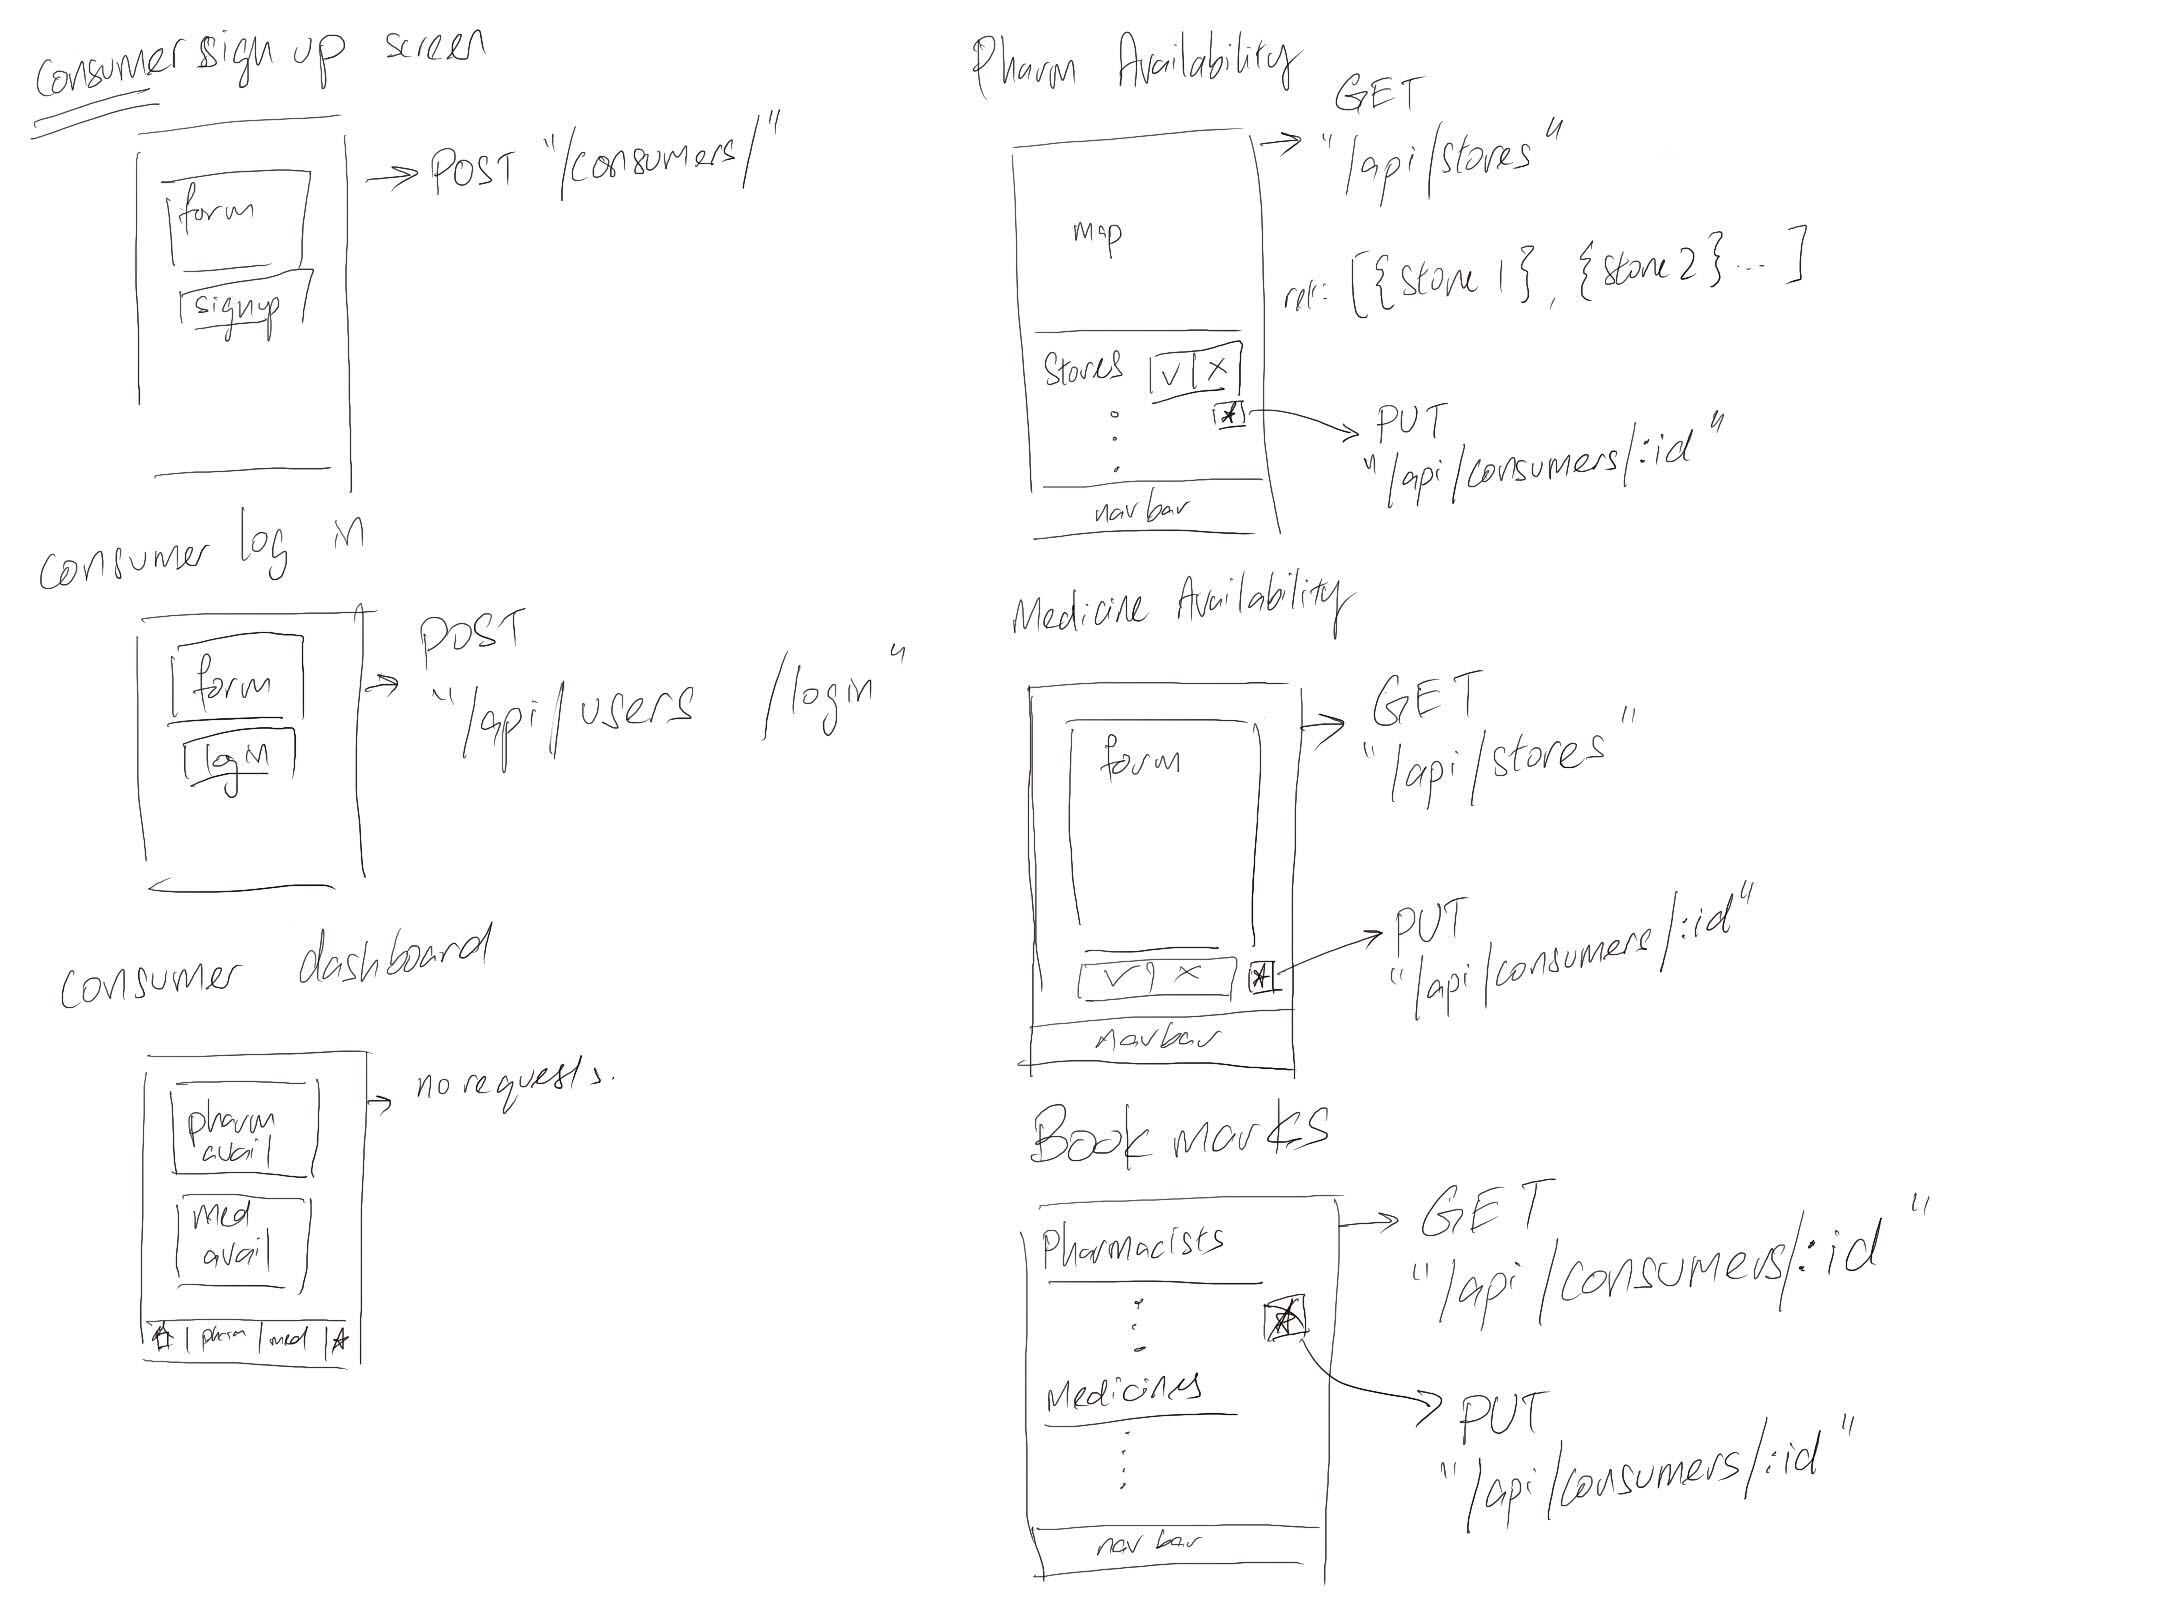 Consumer sign up screen
form
signup
→ POST "/consumers/"
Consumer log in
form
log in
→ POST
"/api/users /login"
Consumer dashboard
pharm
avail
med
avail
→ no requests.
pharm | med
Pharm Availability
map
Stores V X
nav bar
→ GET
"/api/stores"
ret: [{store 1}, {store 2}... ]
PUT
"/api/consumers/:id"
Medicine Availability
form
V X
navbar
→ GET
"/api/stores"
PUT
"/api/consumers/:id"
Book marks
Pharmacists
Medicines
nav bar
→ GET
"/api/consumers/:id"
PUT
"/api/consumers/:id"